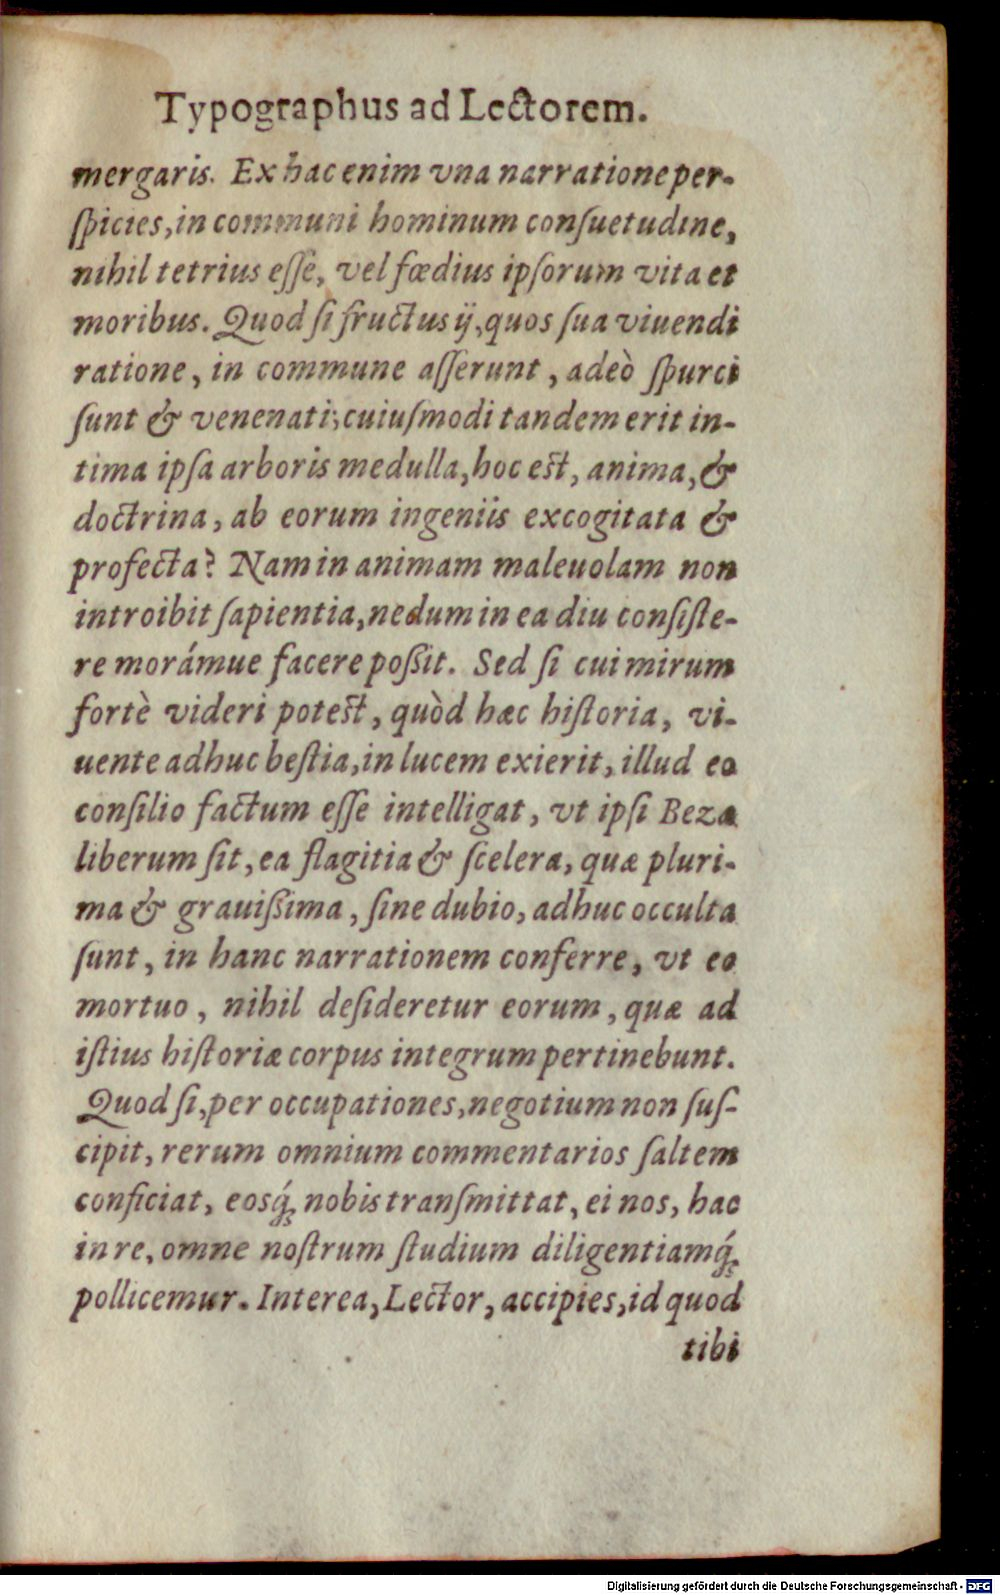 Typographus ad Lectorem.
mergaris. Ex hac enim vna narratione per-
ſpicies, in communi hominum conſuetudine,
nihil tetrius eſſe, vel fœdius ipſorum vita et
moribus. Quod ſi fructus ij, quos ſua viuendi
ratione, in commune aſſerunt, adeò ſpurci
ſunt & venenati; cuiuſmodi tandem erit in-
tima ipſa arboris medulla, hoc est, anima, &
doctrina, ab eorum ingeniis excogitata &
profecta? Nam in animam maleuolam non
introibit ſapientia, nedum in ea diu conſiſte-
re morámue facere poßit. Sed ſi cui mirum
fortè videri potest, quòd hæc hiſtoria, vi-
uente adhuc beſtia, in lucem exierit, illud eo
conſilio factum eſſe intelligat, vt ipſi Beza
liberum ſit, ea flagitia & ſcelera, quæ pluri-
ma & grauißima, ſine dubio, adhuc occulta
ſunt, in hanc narrationem conferre, vt eo
mortuo, nihil deſideretur eorum, quæ ad
iſtius hiſtoriæ corpus integrum pertinebunt.
Quod ſi, per occupationes, negotium non ſuſ-
cipit, rerum omnium commentarios ſaltem
conficiat, eosq́; nobis tranſmittat, ei nos, hac
in re, omne noſtrum ſtudium diligentiamq́;
pollicemur. Interea, Lector, accipies, id quod
tibi
Digitalisierung gefördert durch die Deutsche Forschungsgemeinschaft - DFG